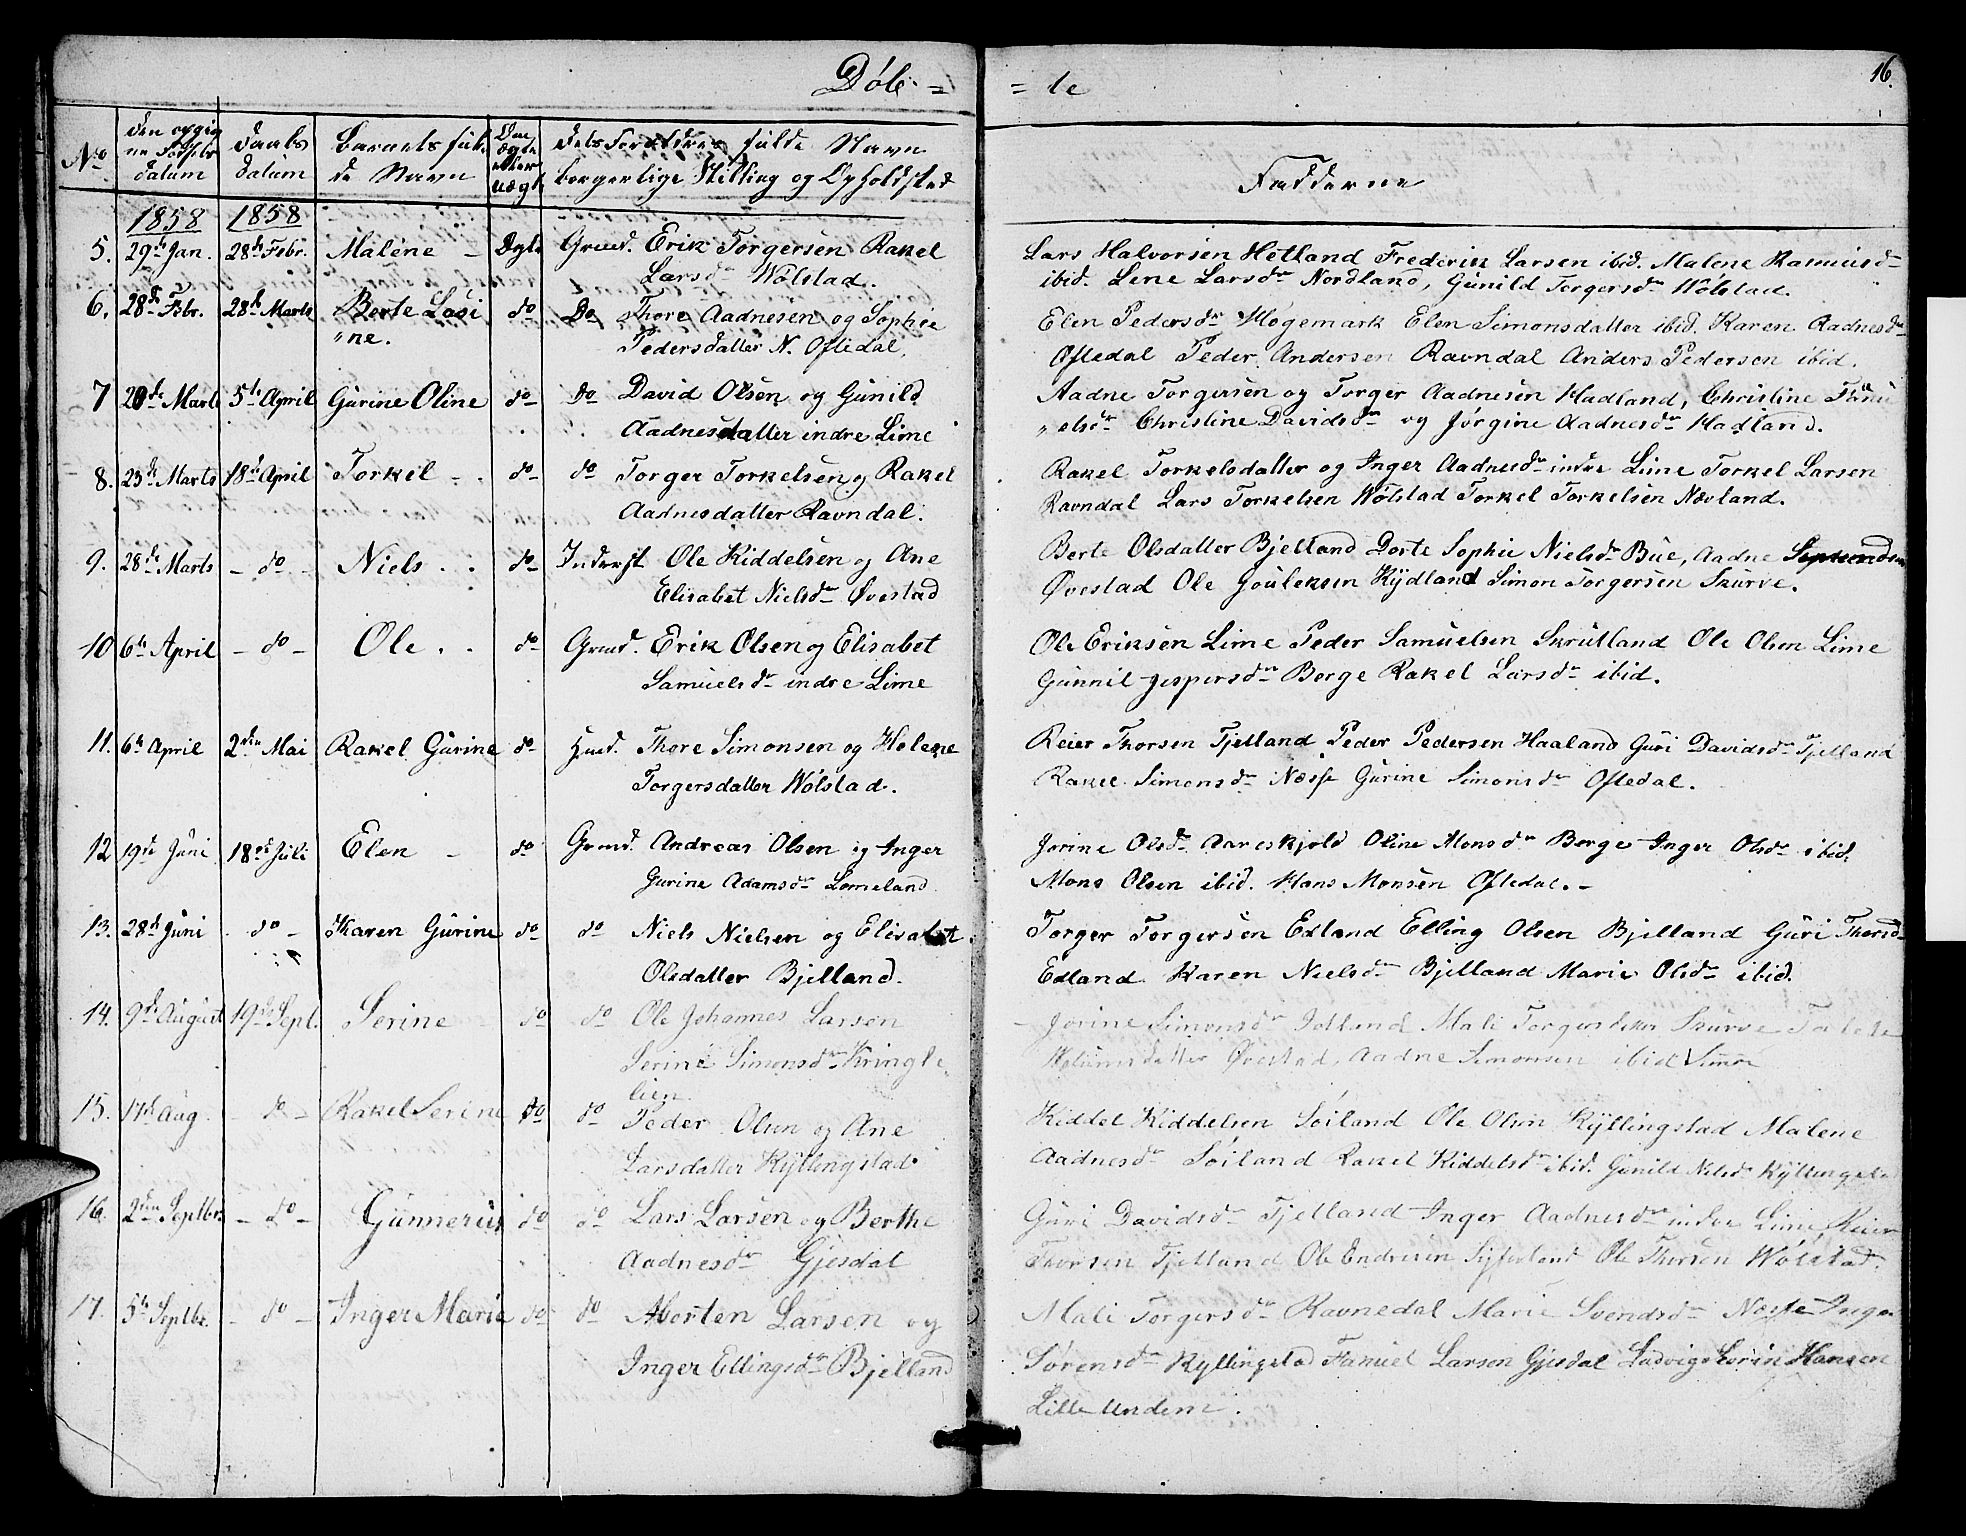 Døb= =te 16.
No
den opgiv
ne Fødsels
datum
Daabs
datum
Barnets ful
de Navn
Om
ægte
eller
uægt
dets Forældres fulde Navn
borgerlige Stilling og Opholdsted
Fadderne
1858 1858
5. 29de Jan. 28de Febr. Malene Ægte Grmd. Erik Torgersen Rakel
Larsdr Wølstad.
Lars Halvorsen Hetland Frederik Larsen ibid. Malene Rasmusdr
ibid. Lene Larsdr Nordland, Gunild Torgersdr Wølstad.
6. 28de Febr. 28de Marts Berte Losi Do Do Thore Aadnesen og Sophie
"ne. Pedersdatter N. Ofledal.
Elen Pedersdr Høgemark Elen Simonsdatter ibid. Karen Aadnesdr
Ofledal Peder Andersen Ravndal Anders Pedersen ibid.
7 20de Marts 5te April Gurine Oline do do David Olsen og Gunild
Aadnesdatter indre Lime
Aadne Torgersen og Torger Aadnesen Hadland, Christine
Christine Davidsdr og Jørgine Aadnesdr Hadland.
8. 23de Marts 18de April Torkel do do Torger Torkelsen og Rakel
Aadnesdatter Ravndal.
Rakel Torkelsdatter og Inger Aadnesdr indre Lime Torkel Larsen
Ravndal Lars Torkelsen Wølstad Torkel Torkelsen Nævland.
9. 28de Marts do Niels do Inderst Ole Kiddelsen og Ane
Elisabet Nielsdr Øvestad
Berte Olsdatter Bjelland Dorte Sophie Nielsdr Bue, Aadne
Øvestad Ole Gouleksen Kydland Simon Torgersen Skurve.
10 6te April do Ole do Grmd. Erik Olsen og Elisabet
Samuelsdr indre Lime
Ole Eriksen Lime Peder Samuelsen Skrutland Ole Olsen Lime
Gunnil Jespersdr Berge Rakel Larsdr ibid.
11. 6te April 2den Mai Rakel Gurine do Hmd. Thore Simonsen og Helene
Torgersdatter Wølstad.
Reier Thorsen Fjelland Peder Pedersen Haaland Guri Davidsdr Fjelland
Rakel Simonsdr Næsse Gurine Simonsdr Ofledal.
12 19de Juni 18de Juli Elen do Grmd. Andreas Olsen og Inger
Gurine Adamsdr Lomeland
Jorine Olsdr Aareskjold Oline Monsdr Berge Inger Olsdr ibid.
Mons Olsen ibid. Hans Monsen Ofledal.
13. 28de Juni do Karen Gurine do do Niels Nielsen og Elisabet
Olsdatter Bjelland.
Torger Torgersen Edland Elling Olsen Bjelland Guri Thorsdr
Edland Karen Nielsdr Bjelland Marie Olsdr ibid.
14. 9de August 19de Sept. Serine do do Ole Johannes Larsen
Serine Simonsdr Kringle
lien
Jorine Simonsdr Mali Torgersdatter Skurve
Øvestad, Aadne Simonsen ibid
15. 17de Aug. do Rakel Serine do do Peder Olsen og Ane
Larsdatter Kyllingstad
Kiddel Kiddelsen Søiland Ole Olsen Kyllingstad Malene
Aadnesdr Søiland Rakel Kiddelsdr ibid. Gunild Nilsdr Kyllingsta
16. 2den Septbr. do Gunnerius do do Lars Larsen og Berthe
Aadnesdr Gjesdal
Guri Davidsdr Fjelland Inger Aadnesdr indre Lime, Reier
Thorsen Fjelland Ole Endresen Ole Thorsen Wølstad.
17. 5te Septbr. do Inger Marie do do Morten Larsen og
Inger Ellingsdr Bjelland
Mali Torgersdr Ravnedal Marie Svendsdr Næsse Inger
Sørensdr Kyllingstad Larson Gjesdal Ludvig Hansen
Lille